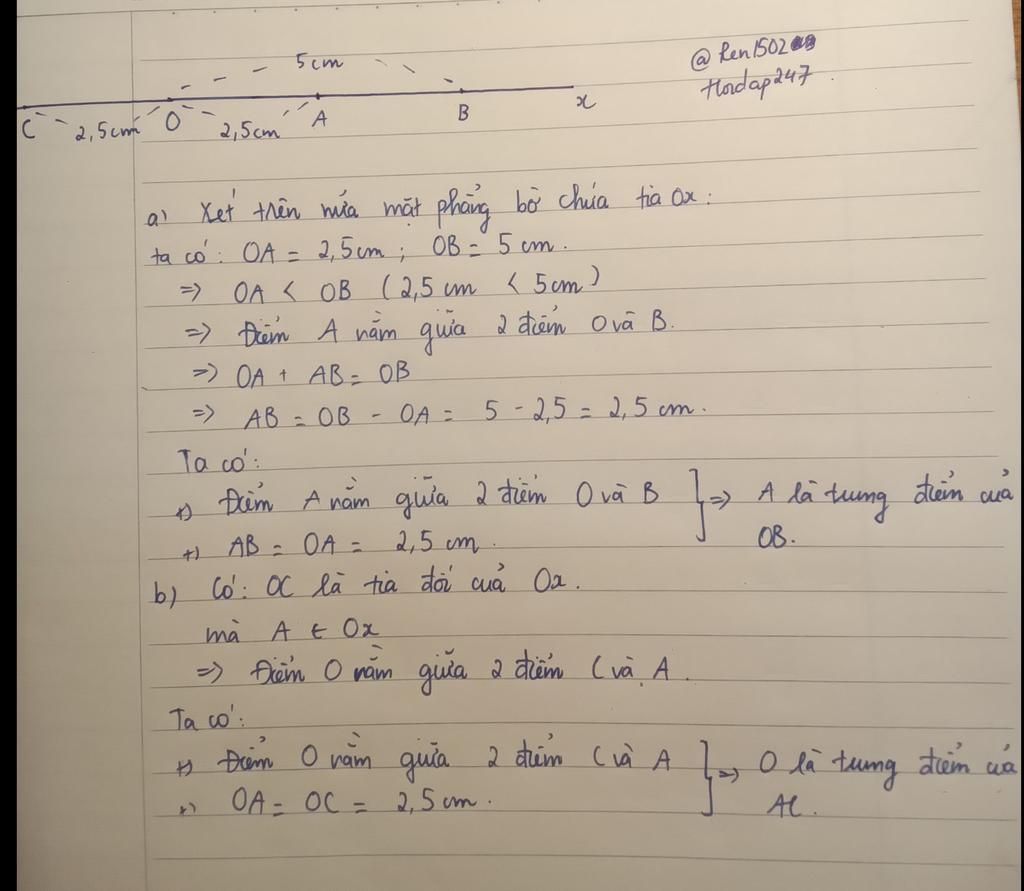 5cm
@Ren1502
Hoidap247
C 2,5cm O 2,5cm A B x
a) Xét trên nửa mặt phẳng bờ chứa tia Ox:
ta có: OA = 2,5cm; OB = 5 cm.
=> OA < OB (2,5 cm < 5cm)
=> Điểm A nằm giữa 2 điểm O và B.
=> OA + AB = OB
=> AB = OB - OA = 5 - 2,5 = 2,5 cm.
Ta có:
+) Điểm A nằm giữa 2 điểm O và B => A là trung điểm của
+) AB = OA = 2,5 cm. OB.
b) Có: OC là tia đối của Ox.
mà A ∈ Ox
=> Điểm O nằm giữa 2 điểm C và A.
Ta có:
+) Điểm O nằm giữa 2 điểm C và A => O là trung điểm của
+) OA = OC = 2,5 cm. AC.